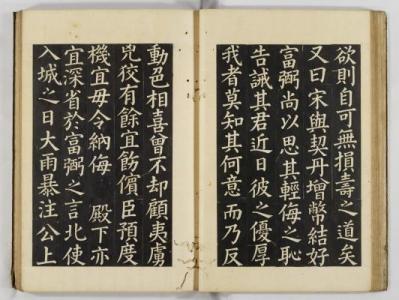 欲則自可無損壽之道矣
又曰宋與契丹增幣結好
富弼尚以思其輕侮之恥
告誡其君近日彼之優厚
我者莫知其何意而乃反
動色相喜曾不却顧夷虜
兇狡有餘宜飭儐臣預度
機宜毋令納侮 殿下亦
宜深省於富弼之言北使
入城之日大雨暴注公上